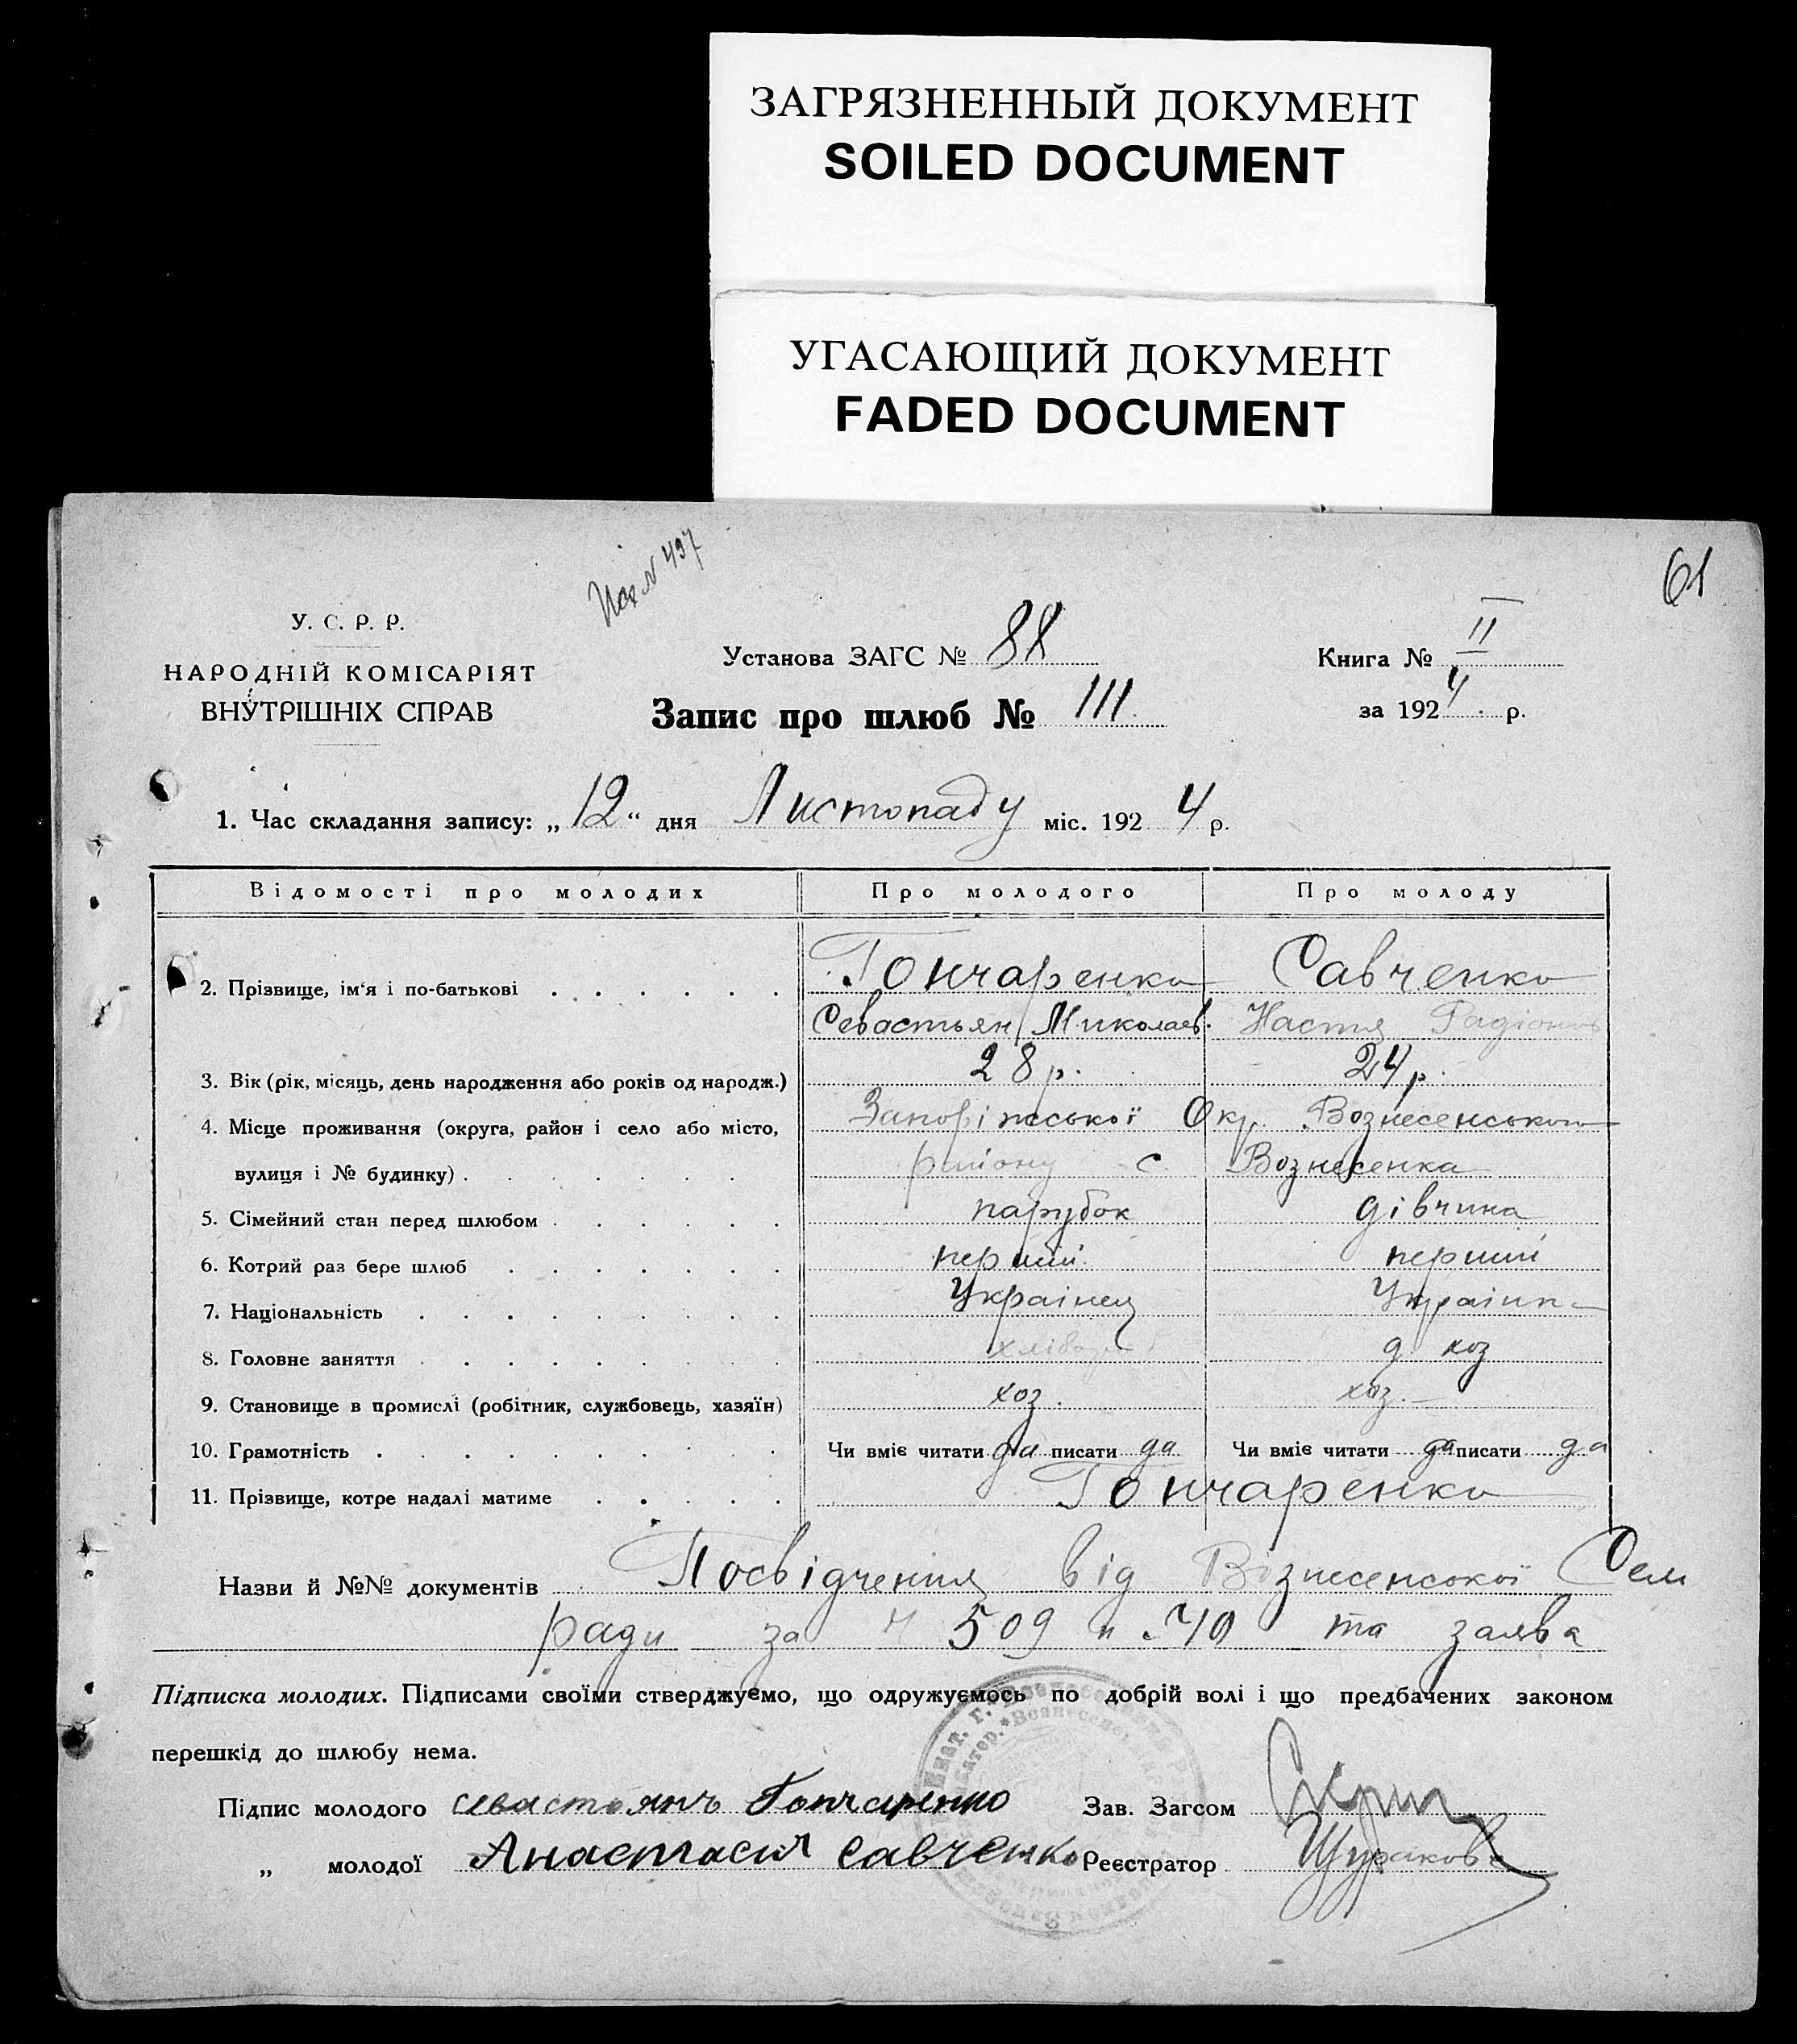 ЗАГРЯЗНЕННЫЙ ДОКУМЕНТ
SOILED DOCUMENT
УГАСАЮЩИЙ ДОКУМЕНТ
FADED DOCUMENT
61
У. С. Р. Р.
НАРОДНІЙ КОМІСАРІЯТ
ВНУТРІШНІХ СПРАВ
Установа ЗАГС № 88
Запис про шлюб № 111
Книга № II
за 1924 р.
1. Час складання запису: „12“ дня Листопаду міс. 1924 р.
Відомості про молодих Про молодого Про молоду
2. Прізвище, ім‘я і по-батькові Гончаренко Савченко
Севастьян Миколаев. Настя
3. Вік (рік, місяць, день народження або років од народж.) 28 р. 24 р.
4. Місце проживання (округа, район і село або місто, Запоріжської Окр. Вознесенського
вулиця і № будинку) району с Вознесенка
5. Сімейний стан перед шлюбом парубок дівчина
6. Котрий раз бере шлюб перший перший
7. Національність Українец Українка
8. Головне заняття д. хоз
9. Становище в промислі (робітник, службовець, хазяїн) хоз. хоз.
10. Грамотність Чи вміє читати да писати да Чи вміє читати да писати да
11. Прізвище, котре надалі матиме Гончаренко
Назви й №№ документів Посвідчення від Вознесенської Сем
ради за Ч 509 и 40 та заява
Підписка молодих. Підписами своїми стверджуємо, що одружуємось по добрій волі і що предбачених законом
перешкід до шлюбу нема.
Підпис молодого Севастоянъ Гончаренко Зав. Загсом
„ молодої Анастасия Савченко Реєстратор